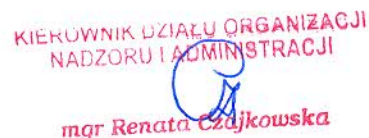 KIEROWNIK DZIAŁU ORGANIZACJI
NADZORU I ADMINISTRACJI
mgr Renata Czajkowska